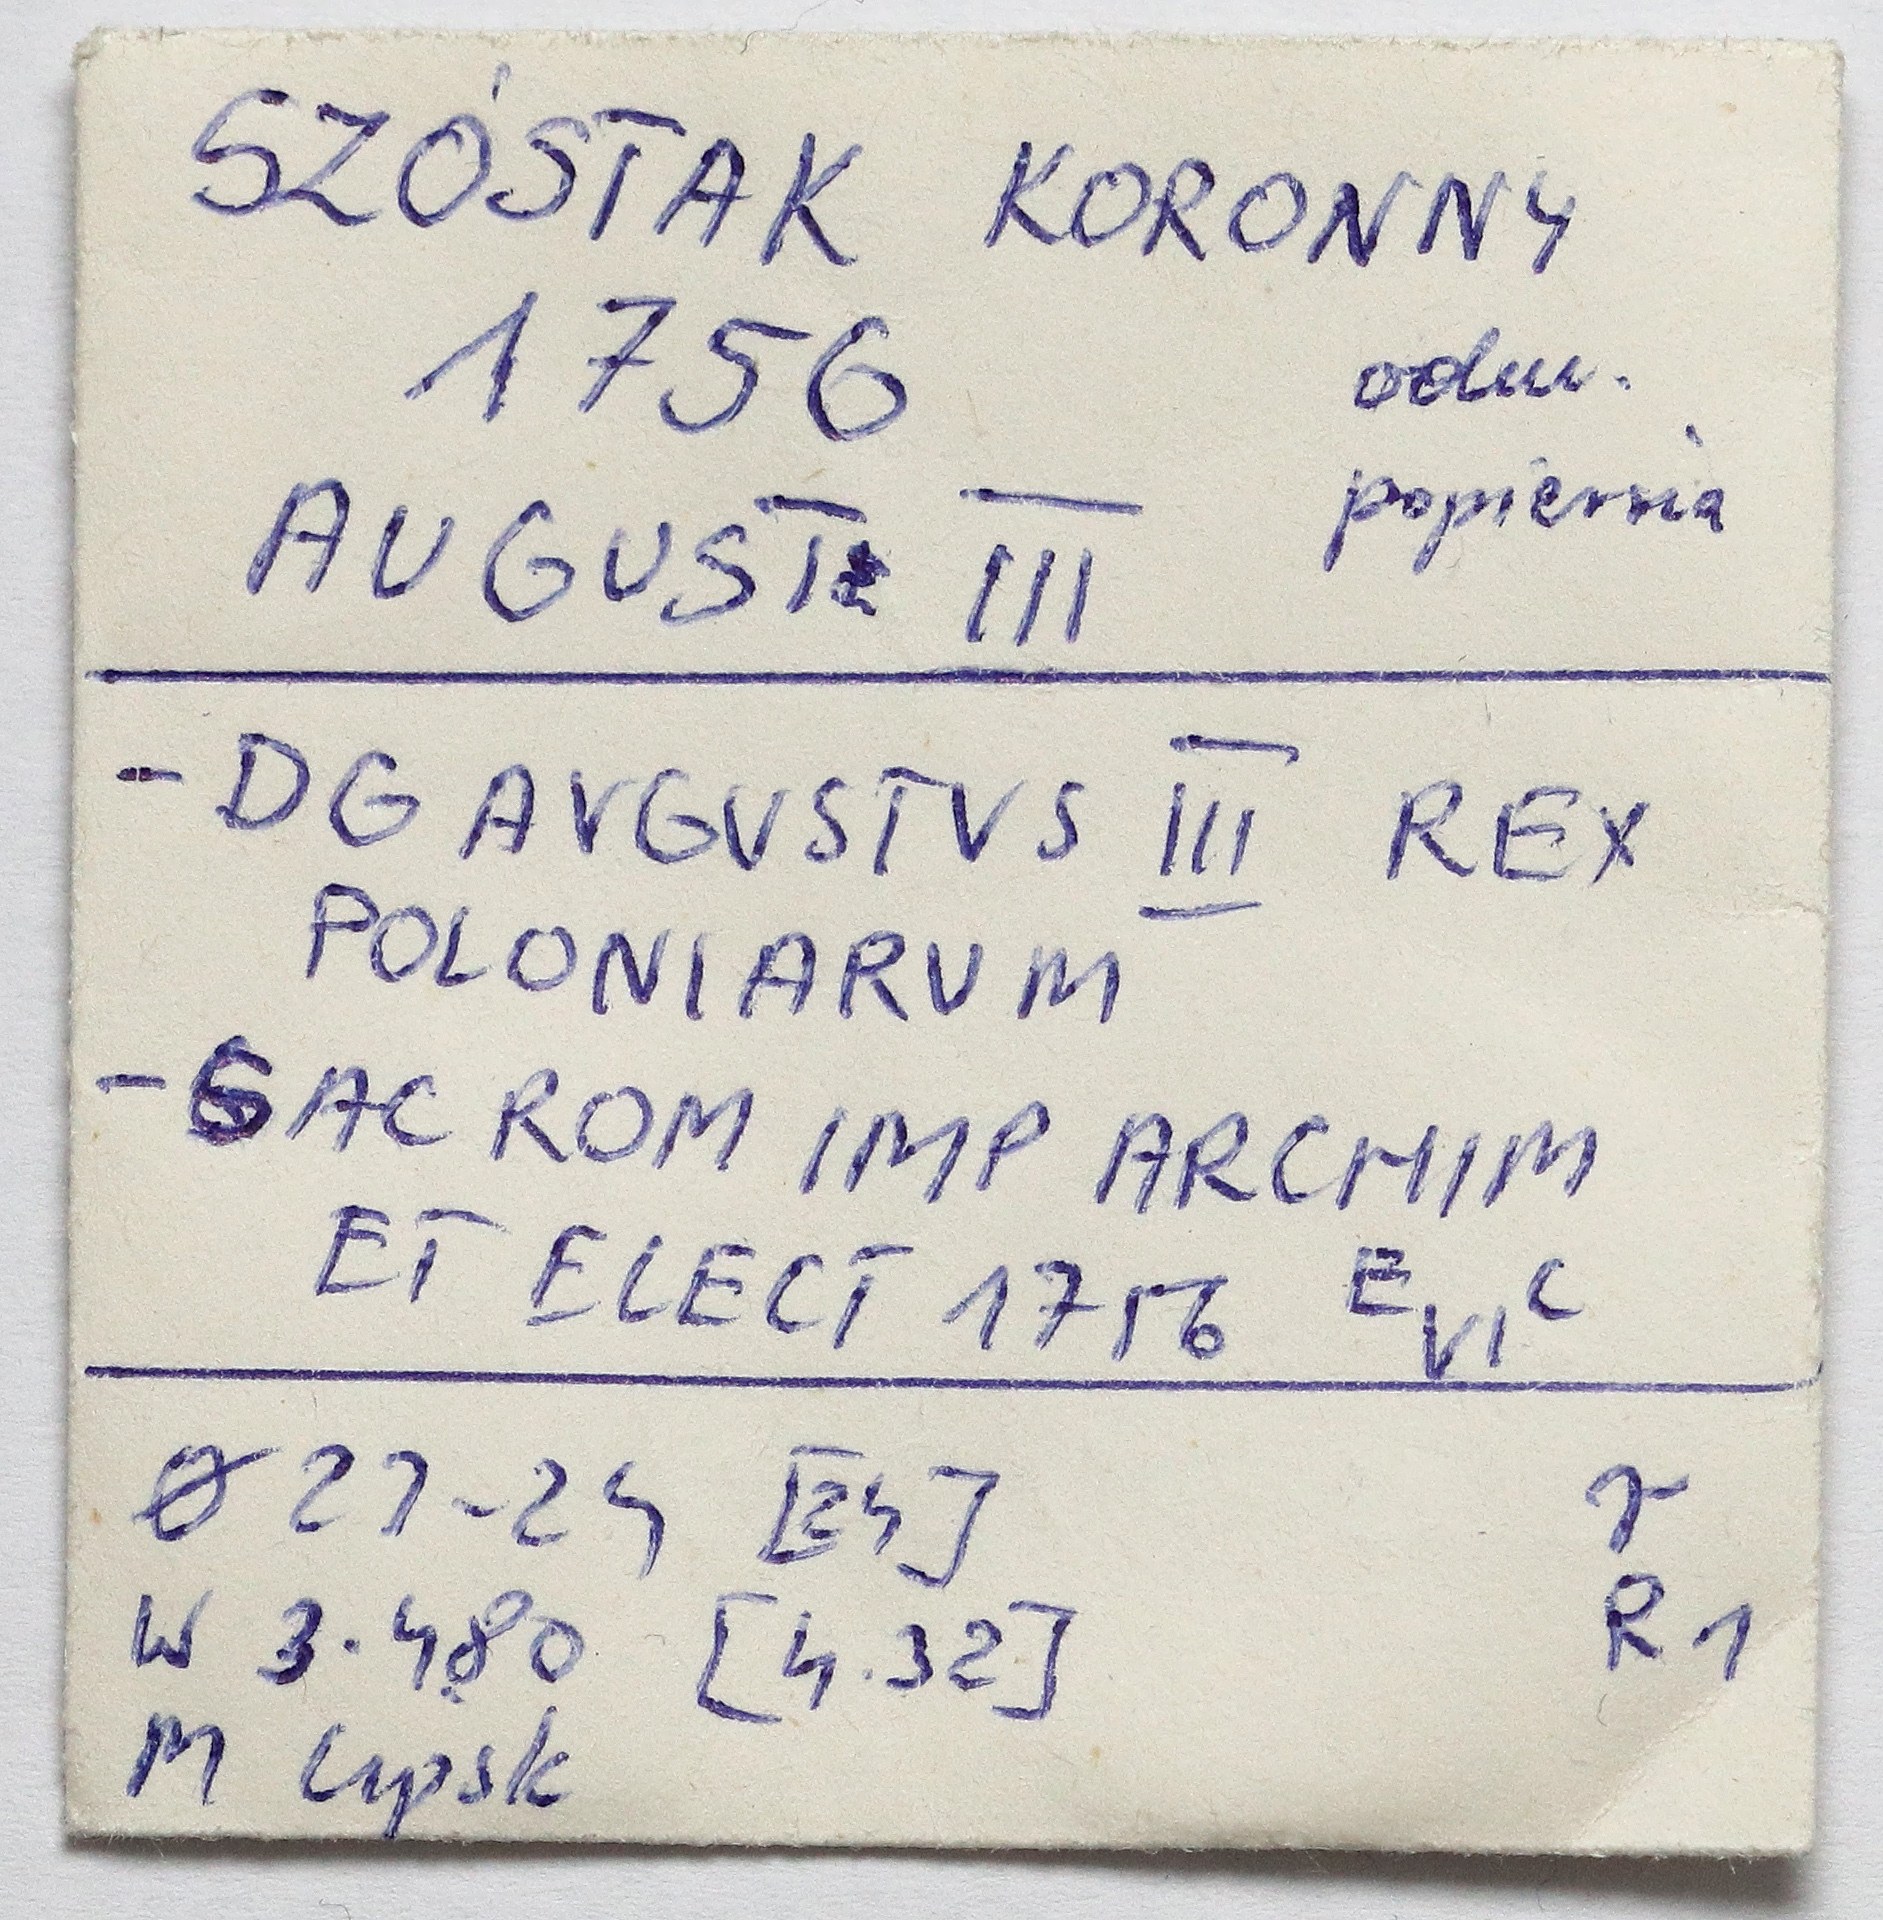 SZÓSTAK KORONNY
1756 odm.
AUGUST III popiersia
- DG AVGVSTVS III REX
POLONIARUM
- SAC ROM IMP ARCHIM
ET ELECT 1756 EVIC
Ø 27-24 [24]
W 3.480 [4.32]
R1
M Lipsk